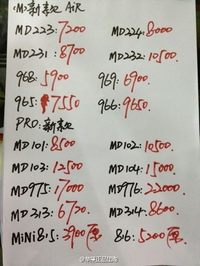 MD新款 AiR
MD223:7200 MD224:8000
MD231:8700 MD232:10500.
968:5900 969:6900.
965:7550 966:9650.
PRO:新款
MD101:8500 MD102:10500.
MD103:12500 MD104:15000.
MD975:17000 MD976:22000.
MD313:6720. MD314:8600.
MiNi815:3900 816:5200